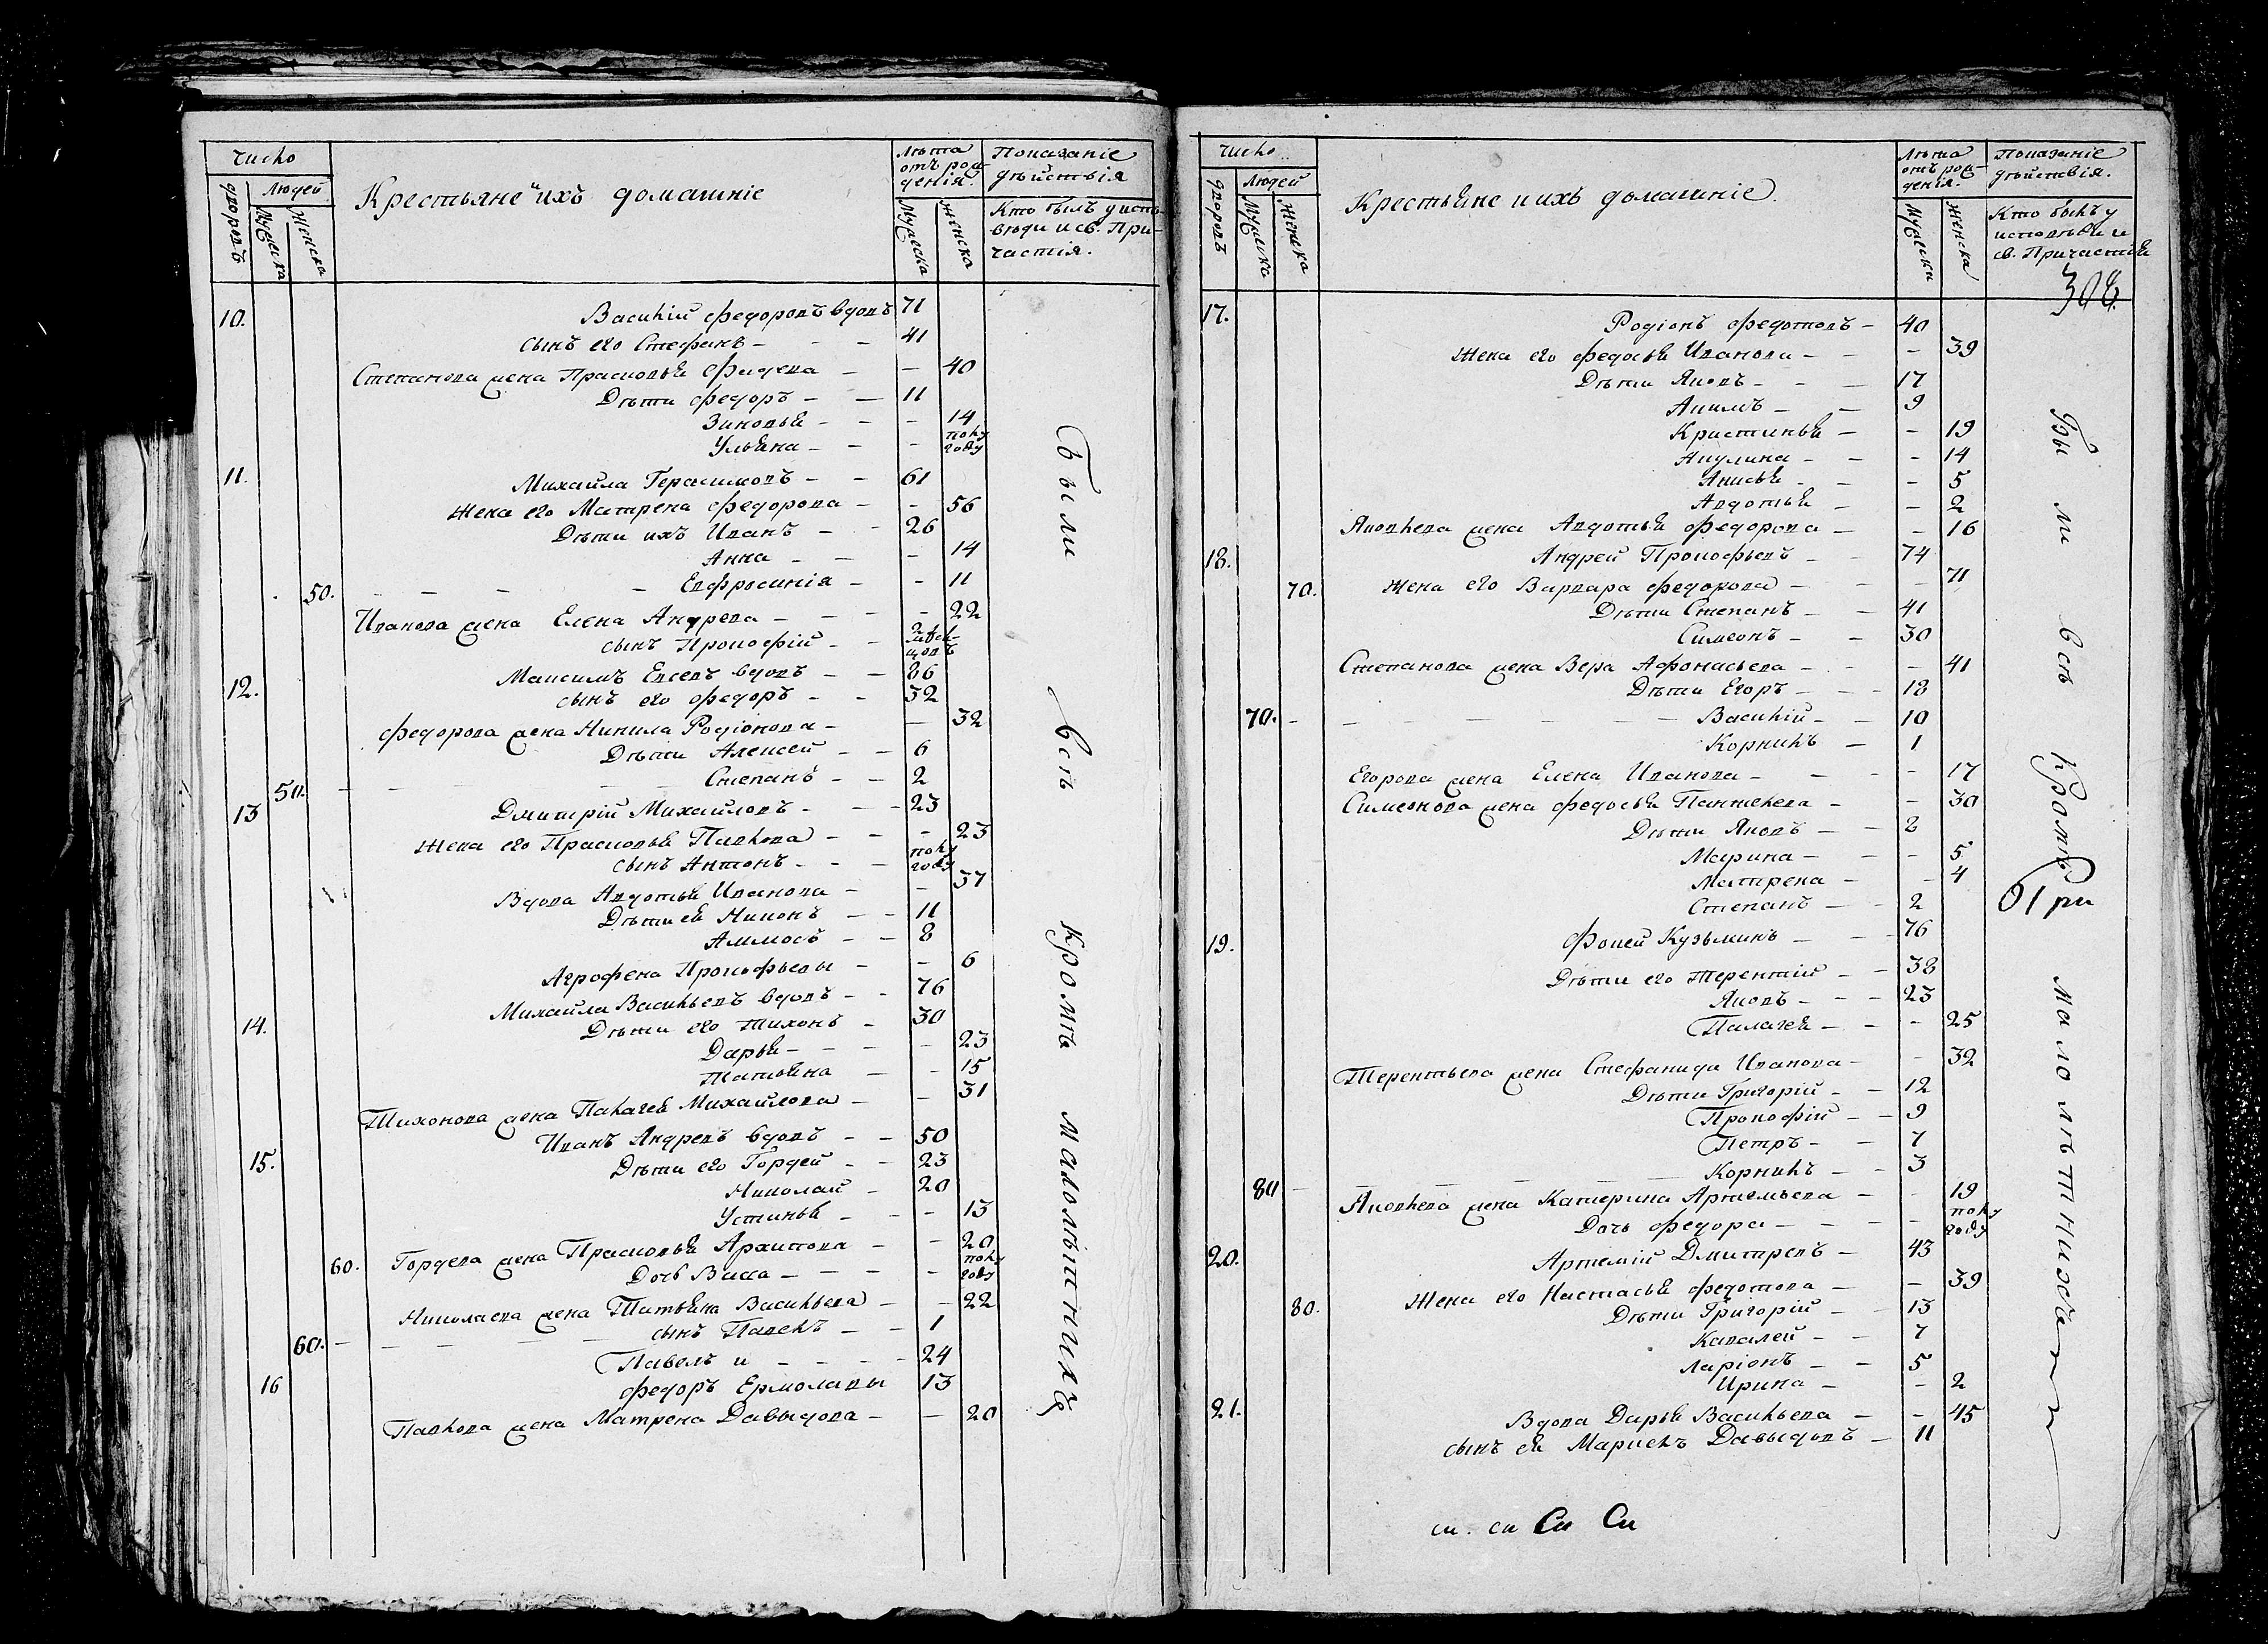 Число
Людей
дворовъ
Мужеска
Женска
Крестьяне и ихъ домашніе
Лѣта
отъ рож-
денія.
Мужеска
Женска
Показаніе
дѣйствія
Кто былъ у испо-
вѣди и св. При-
частія.
10. Василій Федоровъ вдовъ 71
сынъ его Стефанъ - - - 41
Степанова жена Прасковья - - 40
Дѣти Федоръ - - 11
Зиновья - - 14
Ульяна - - - полу
году
11. Михайла Герасимовъ - - 61
Жена его Матрена Федорова - - 56
Дѣти ихъ Иванъ - - 26
Анна - - - 14
50. - - - - Евфросинія - - 11
Иванова жена Елена Андрева - - - 22
сынъ Прокофій - -
12. Максимъ Евсевъ вдовъ - - 86
сынъ его Федоръ - - 32
Федорова жена Никила Родіонова - - 32
Дѣти Алексей - - 6
50. - - - Степанъ - - 2
13 Дмитрій Михайловъ - - - 23
Жена его Прасковья Павлова - - - 23
сынъ Антонъ - - - полу
году
Вдова Авдотья Иванова - - 57
Дѣти ея Никонъ - - 11
Аммосъ - - 8
Агрофена Прокофьевы - - 6
14. Михайла Васильевъ вдовъ - - 76
Дѣти его Тихонъ - 30
Дарья - - - - 23
Татьяна - - 15
Тихонова жена Палагея Михайлова - - 31
15. Иванъ Андревъ вдовъ - - 50
Дѣти его Гордей - - 23
Николай - 20
Устинья - - - 13
60. Гордева жена Прасковья Архипова - - 20
Дочь Васса - - - - полу
году
Николаева жена Татьяна Васильева - - 22
60. - - - - сынъ Павелъ - - 1
16 Павелъ и - - - - 24
Федоръ Ермолавы 13
Павлова жена Матрена Давыдова - - 20
Были всѣ кромѣ малолѣтнихъ
Число
Людей
дворовъ
Мужеска
Женска
Крестьяне и ихъ домашніе.
Лѣта
отъ рож-
денія.
Мужеска
Женска
Показаніе
дѣйствія.
Кто былъ у
исповѣди и
св. Причастія
308.
17. Родіонъ Федотовъ - 40
Жена его Федосья Иванова - - - 39
Дѣти Яковъ - - - 17
Акимъ - - 9
Кристинья - - 19
Акулина - - - 14
Анисья - - - 5
Авдотья - - 2
Яковлева жена Авдотья Федорова - - 16
18. Андрей Прокофьевъ - - 74
70. Жена его Варвара Федорова - - - 71
Дѣти Степанъ - - 41
Симеонъ - - 30
Степанова жена Вера Афонасьева - - - 41
Дѣти Егоръ - - - 18
70. - - - - - - Василій - - 10
Корнилъ - 1
Егорова жена Елена Иванова - - - - 17
Симеонова жена Федосья Пантелева - - 30
Дѣти Яковъ - - 8
Марина - - - 5
Матрена - - 4
Степанъ - - 2
19. Фокей Кузьминъ - - - 76
Дѣти его Терентій - - 38
Яковъ - - - 23
Палагея - - - 25
Терентьева жена Стефанида Иванова - - 32
Дѣти Григорій - - 12
Прокофій - - 9
Петръ - - 7
80 - - - - - Корнилъ - - 3
Яковлева жена Катерина Артемьева - - 19
Дочь Федора - - - - полу
году
20. Артемій Дмитревъ - 43
80. Жена его Настасья Федотова - - 39
Дѣти Григорій - - 13
Кавалей - - 7
Ларіонъ - - 5
Ирина - - 2
21. Вдова Дарья Васильева - - 45
сынъ ея Маркелъ Давыдовъ - 11
Были всѣ кромѣ малолѣтнихъ